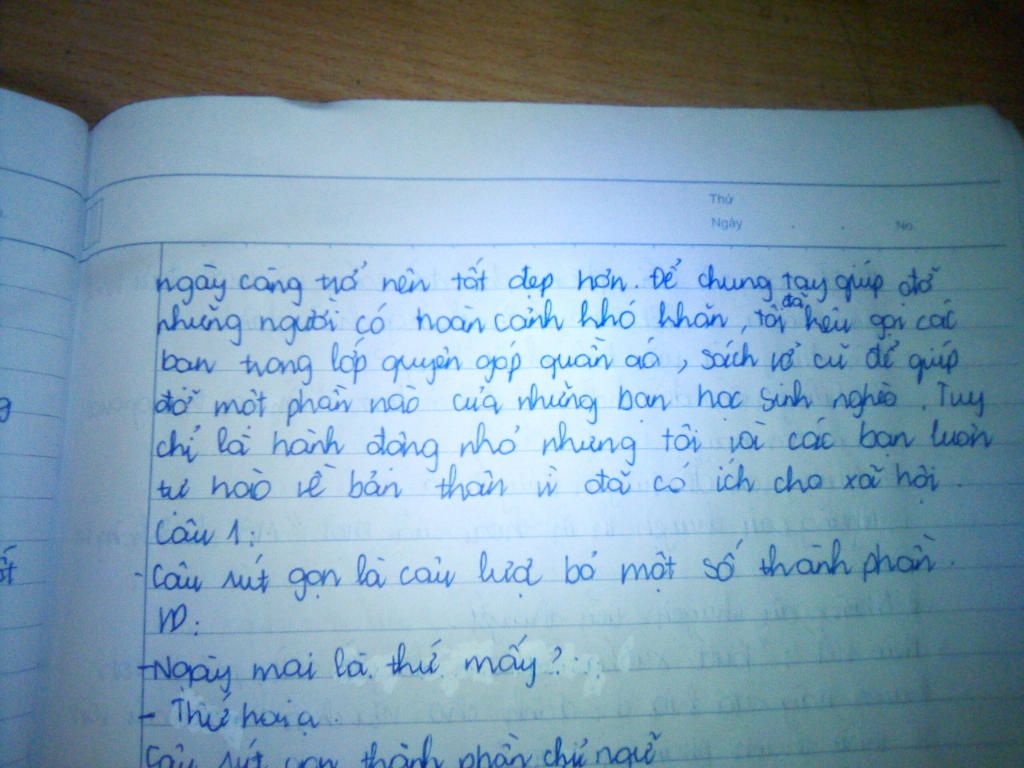 Thứ
Ngày . . No.
ngày càng trở nên tốt đẹp hơn. Để chung tay giúp đỡ
những người có hoàn cảnh khó khăn, tôi đã kêu gọi các
bạn trong lớp quyên góp quần áo, sách vở cũ để giúp
đỡ một phần nào của những bạn học sinh nghèo. Tuy
chỉ là hành động nhỏ nhưng tôi và các bạn luôn
tự hào về bản thân vì đã có ích cho xã hội.
Câu 1:
- Câu rút gọn là câu lượt bỏ một số thành phần.
VD:
- Ngày mai là thứ mấy?
- Thứ hai ạ.
Câu rút gọn thành phần chủ ngữ